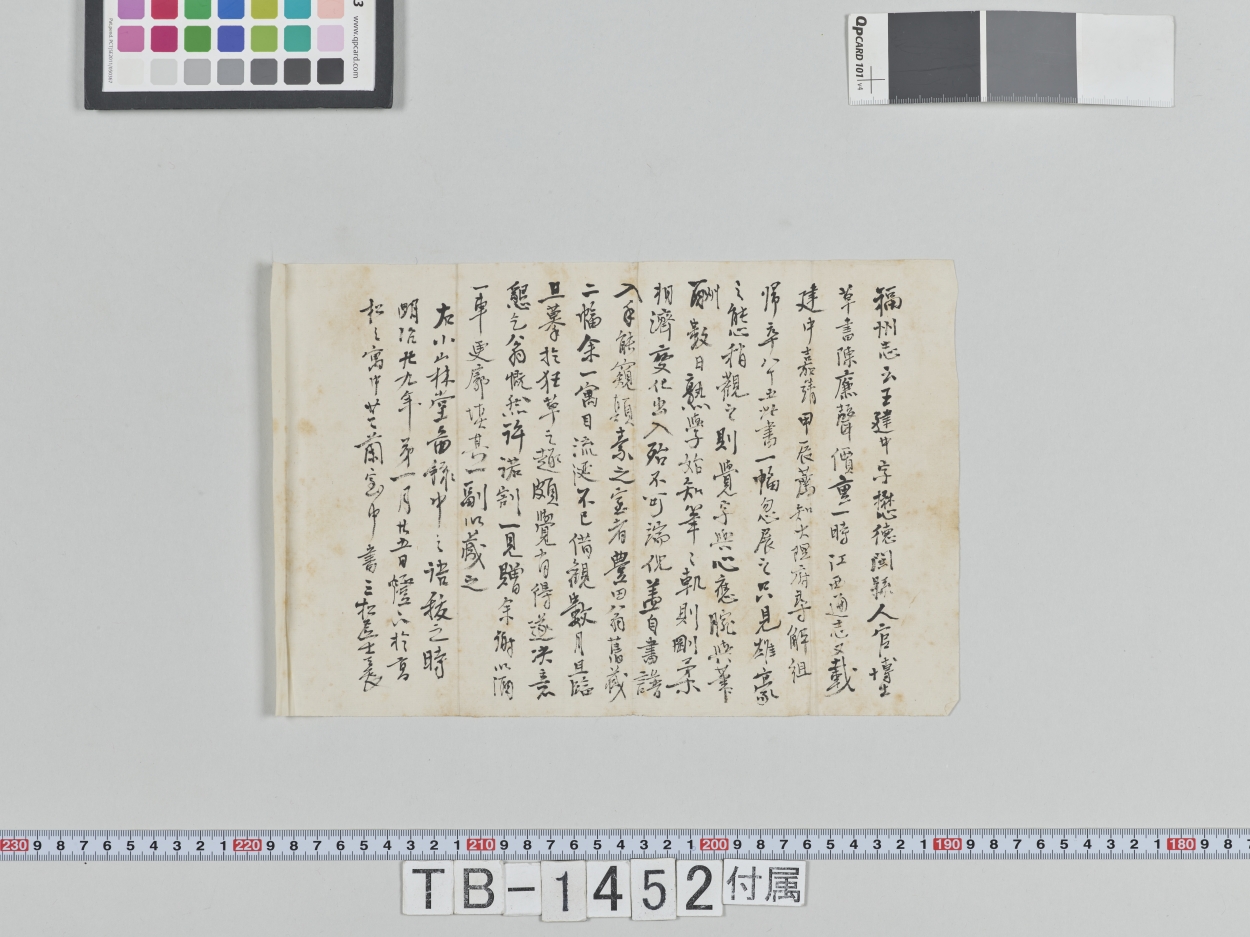 福州志云王建中字懋德閩縣人官博士
草書陳廉聲價重一時江西通志又載
建中嘉靖甲辰薦知大理府尋解組
帰卒八十五此書一幅忽展之只見雄豪
之態稍觀之則覺字與心應腕與筆
酬數日熟學始知筆之軌則剛柔
相濟變化出入殆不可端倪蓋自書譜
入手能窺顛素之室者豊田翁舊蔵
二幅余一寓目流涎不已借觀數月且臨
且摹於狂草之趣頗覺有得遂决意
懇乞翁慨然許諾割一見贈余謝以酒
一車更廓填其一副以蔵之
右小山林堂畣録中之語移之時
明治廿九年第一月廿五日燈下於
松之寓中 蘭室中書三松居士
230 9 8 7 6 5 4 3 2 1 220 9 8 7 6 5 4 3 2 1 210 9 8 7 6 5 4 3 2 1 200 9 8 7 6 5 4 3 2 1 190 9 8 7 6 5 4 3 2 1 180 9 8
TB-1452付属
www.qpcard.com
QPCARD 101 v4